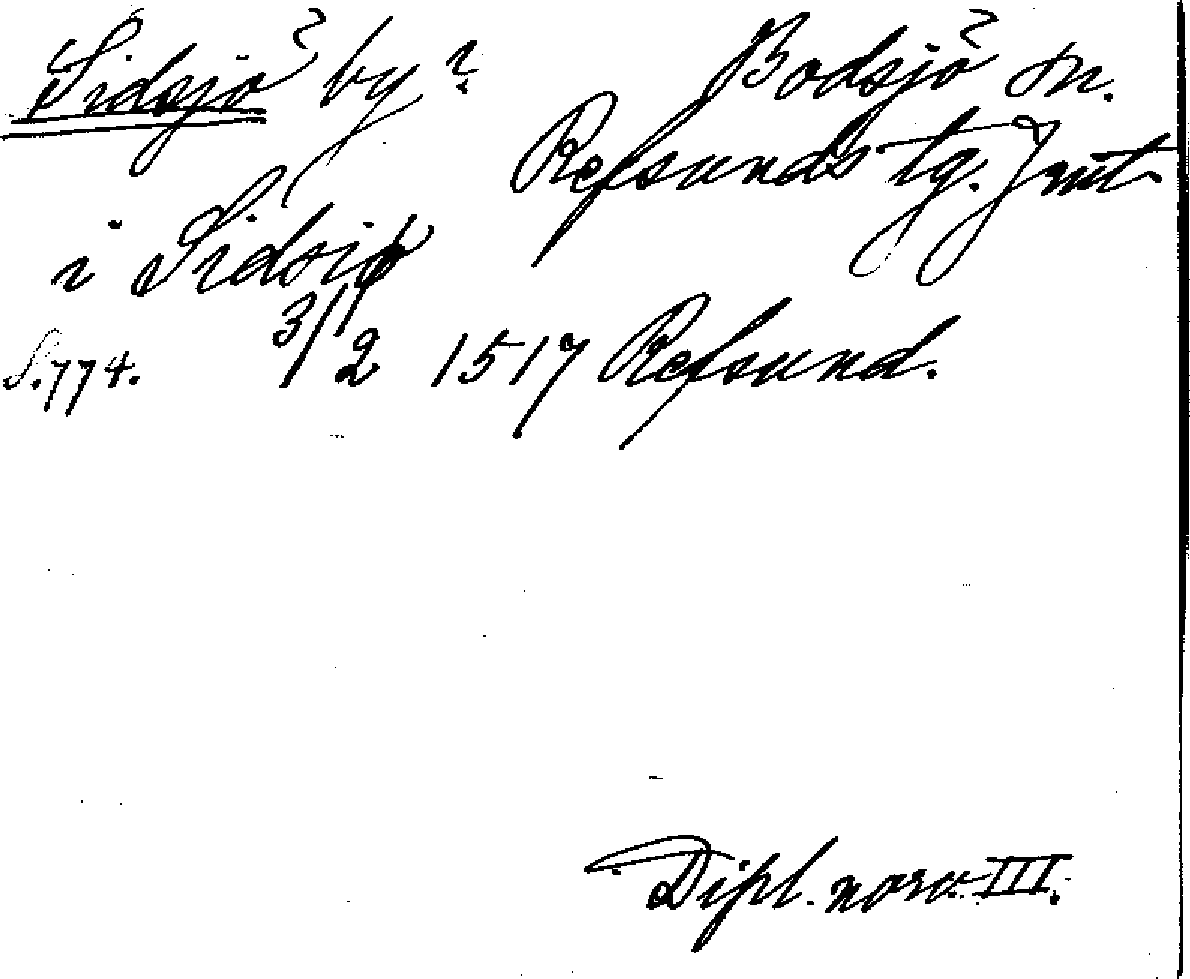 Sidsjö by? Bodsjö sn.
Refsunds tg. Jmt
i Sidsiø
S. 774. 3/11 2 1517 Refsund.
Dipl. norv. III.